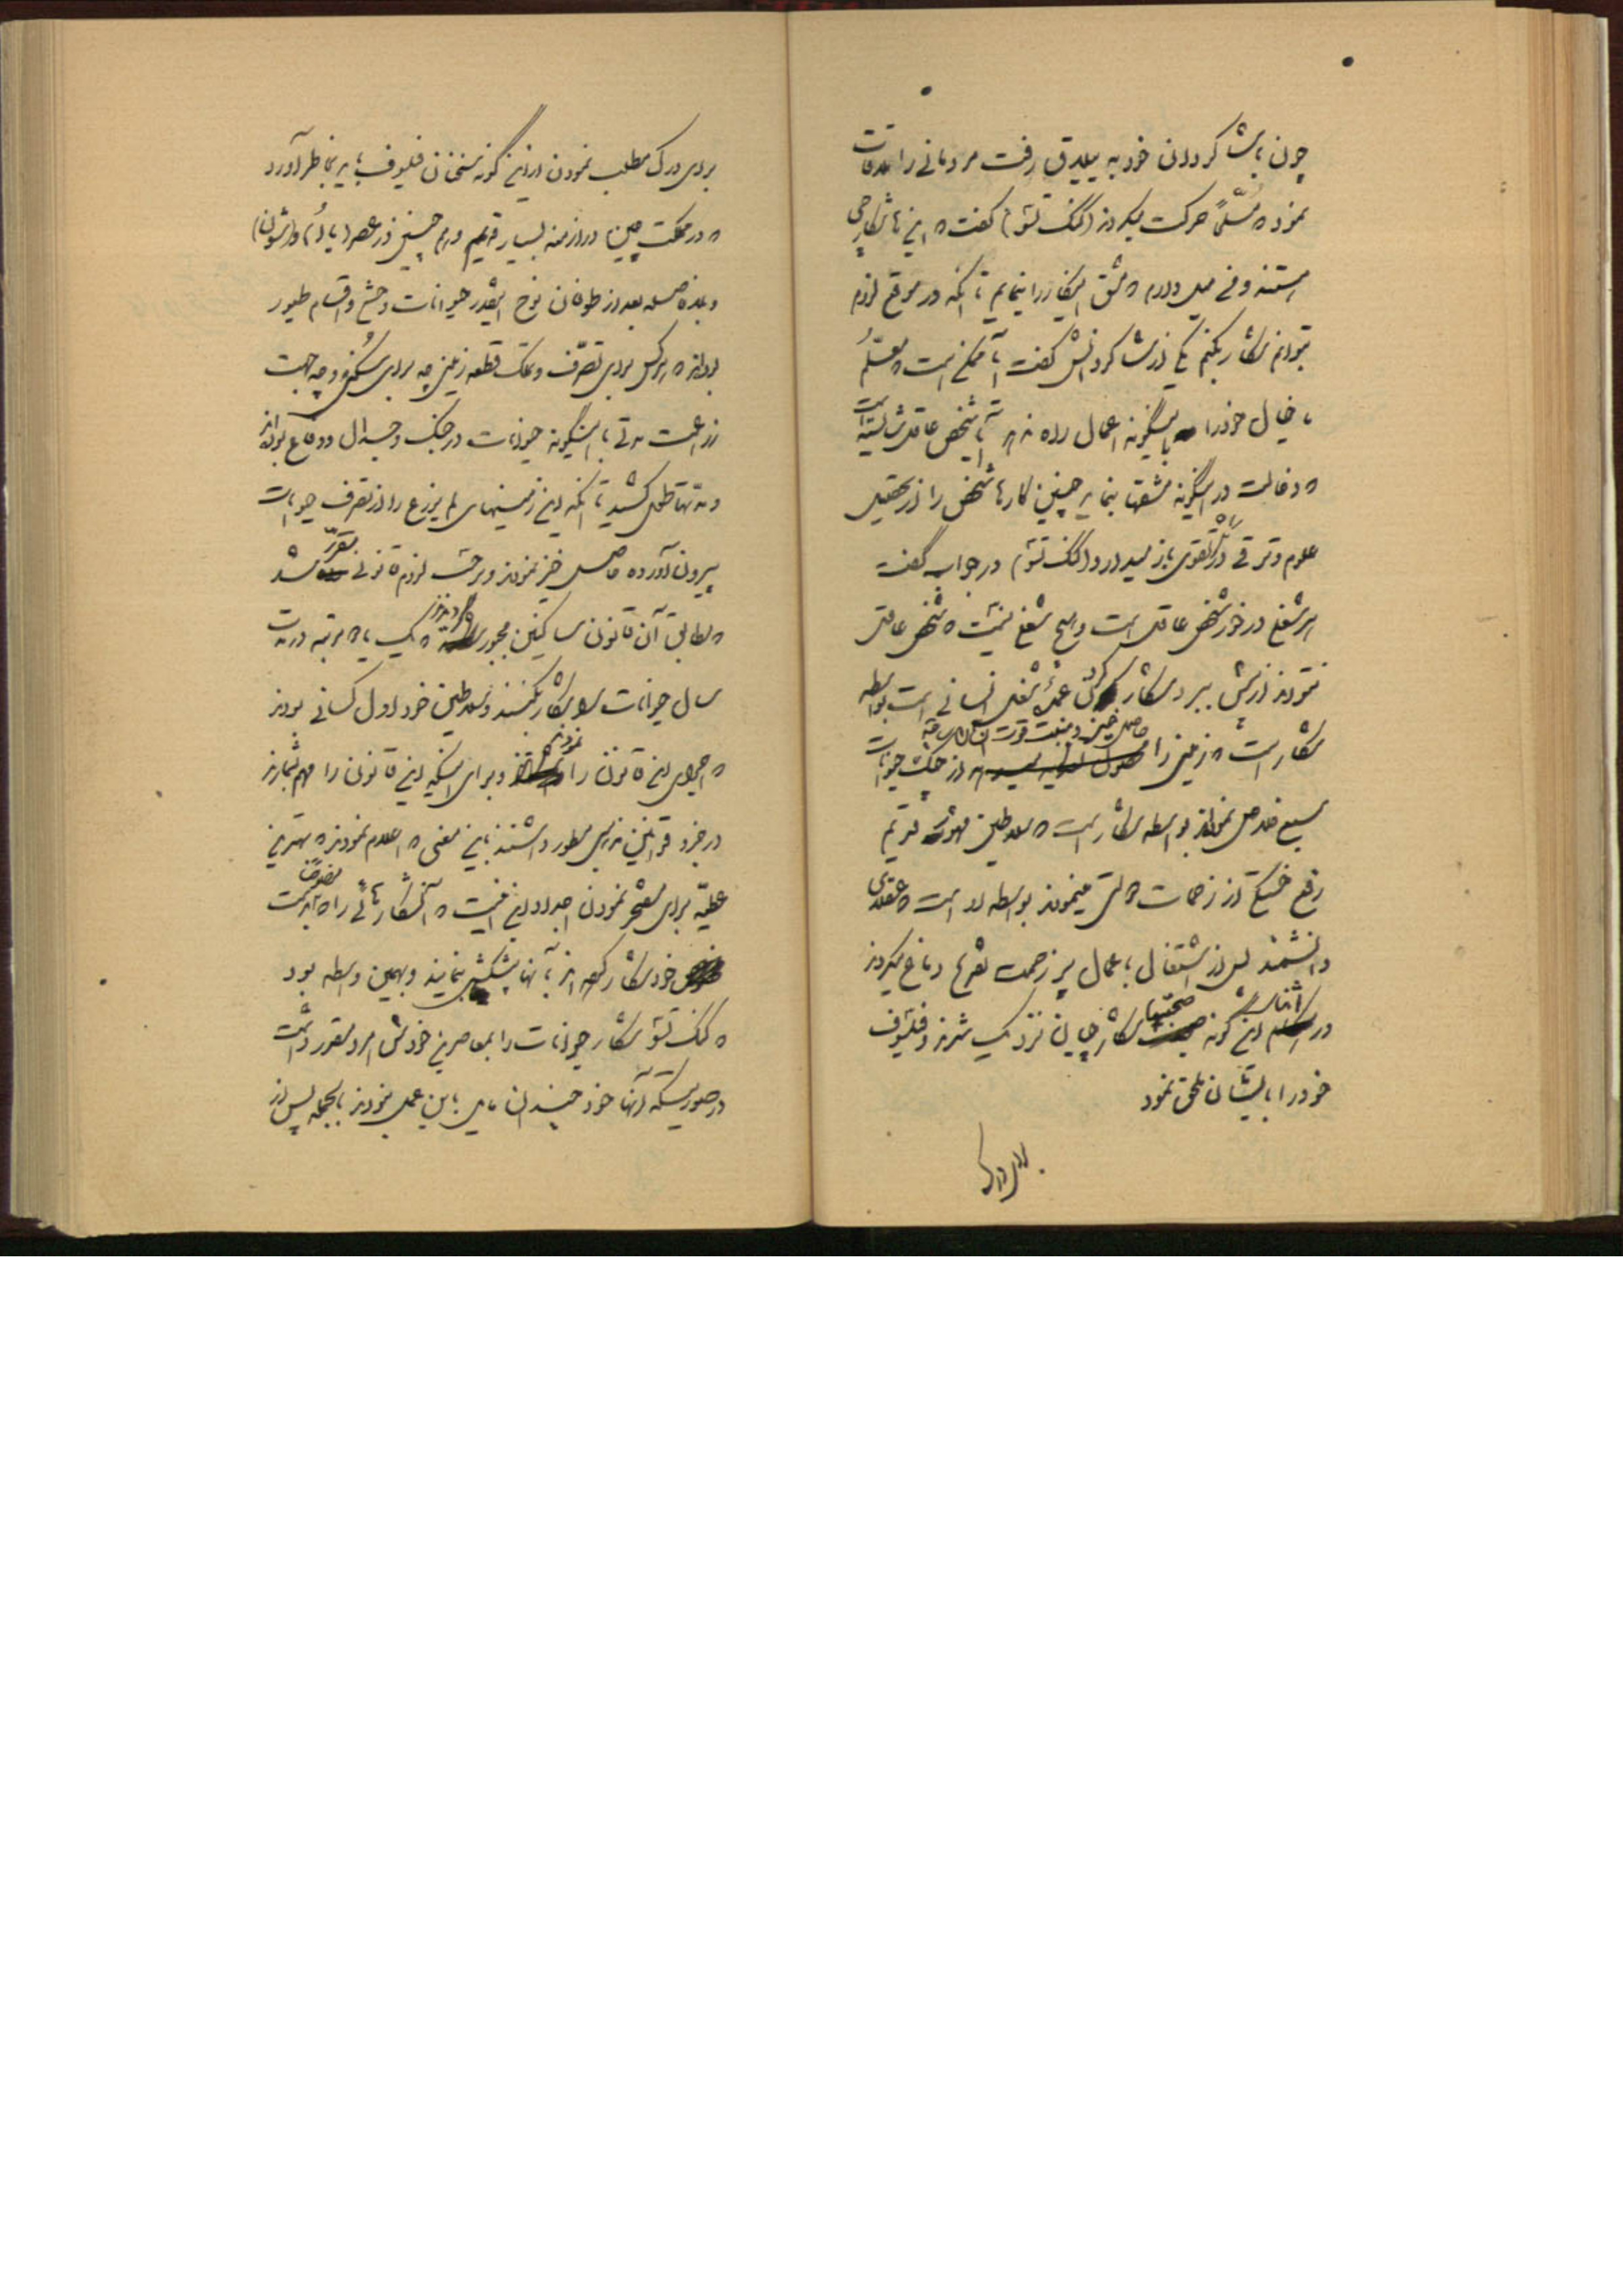 چون با شاگردان خود به ییلاق رفت مردمانی را ملاقات
نمود که مسلحاً حرکت میکردند (کنگ تسو) گفت که این ها شکارچی
هستند و من میل دارم که مشق اینکار را بنمایم تا آنکه در موقع لزوم
بتوانم شکار بکنم یکی از شاگردانش گفت آیا ممکن است که معلم
ما خیال خود را باینگونه اعمال راه دهد آیا شخص عاقل شایسته است
که دخالت در اینگونه مشقها بنماید چنین کارها شخص را از تحصیل
علوم و ترقی در تقوی باز میدارد (کنگ تسو) در جواب گفت
هر شغلی در خور شخص عاقل است و هیچ شغلی نیست که شخص عاقل
نتواند ارزش ببرد شکار کردن عمده شغل انسانی است بواسطه
شکار است که زمین را حاصل خیز و منبت قوت انسان ساخته از چنگ حیوانات
سبع خلاص نموده‌اند بواسطه شکار است که سلاطین مشهور قدیم
رفع خستگی از زحمات دولتی مینمودند بواسطه او است که عقلای
دانشمند پس از اشتغال باعمال پر زحمت تفریح دماغ میکردند
در اثنای این گونه صحبتها شکارچیان نزدیک شدند و فیلسوف
خود را بایشان ملحق نمود
برای درک مطلب نمودن از این گونه سخنان فیلسوف باید بخاطر آورد
که در مملکت چین در ازمنه بسیار قدیم و هم چنین در عصر (یائو) و (شون)
و بلافاصله بعد از طوفان نوح اینقدر حیوانات وحشی و اقسام طیور
بودند که هر کس برای تصرف و تملک قطعه زمین چه برای سکنی و چه جهت
زراعت مدتی با اینگونه حیوانات در جنگ و جدال و دفاع بوده‌اند
و مدتها طول کشید تا آنکه این زمینهای لم یزرع را از تصرف حیوانات
بیرون آورده حاصل خیز نمودند و بر حسب لزوم قانونی مقرر شد
که مطابق آن قانون ساکنین مجبور گردیدند که یک یا دو مرتبه در مدت
سال حیوانات را شکار بکنند و سلاطین خود اول کسانی بودند
که اجرای این قانون را نمودند و برای اینکه این قانون را مهم شمارند
در جزو قوانین مذهبی منظور داشتند باین معنی که اعلام نمودند که بهترین
عطیه برای مفتخر نمودن اجداد این است که آن شکارهائی را که بدست
خود شکار کرده‌اند بآنها پیشکش بنمایند و بهمین واسطه بود
که کنگ تسو شکار حیوانات را بمعاصرین خودش امر و مقرر داشت
در صورتیکه آنها خود چندان مایل باین عمل نبودند بالجمله پس از